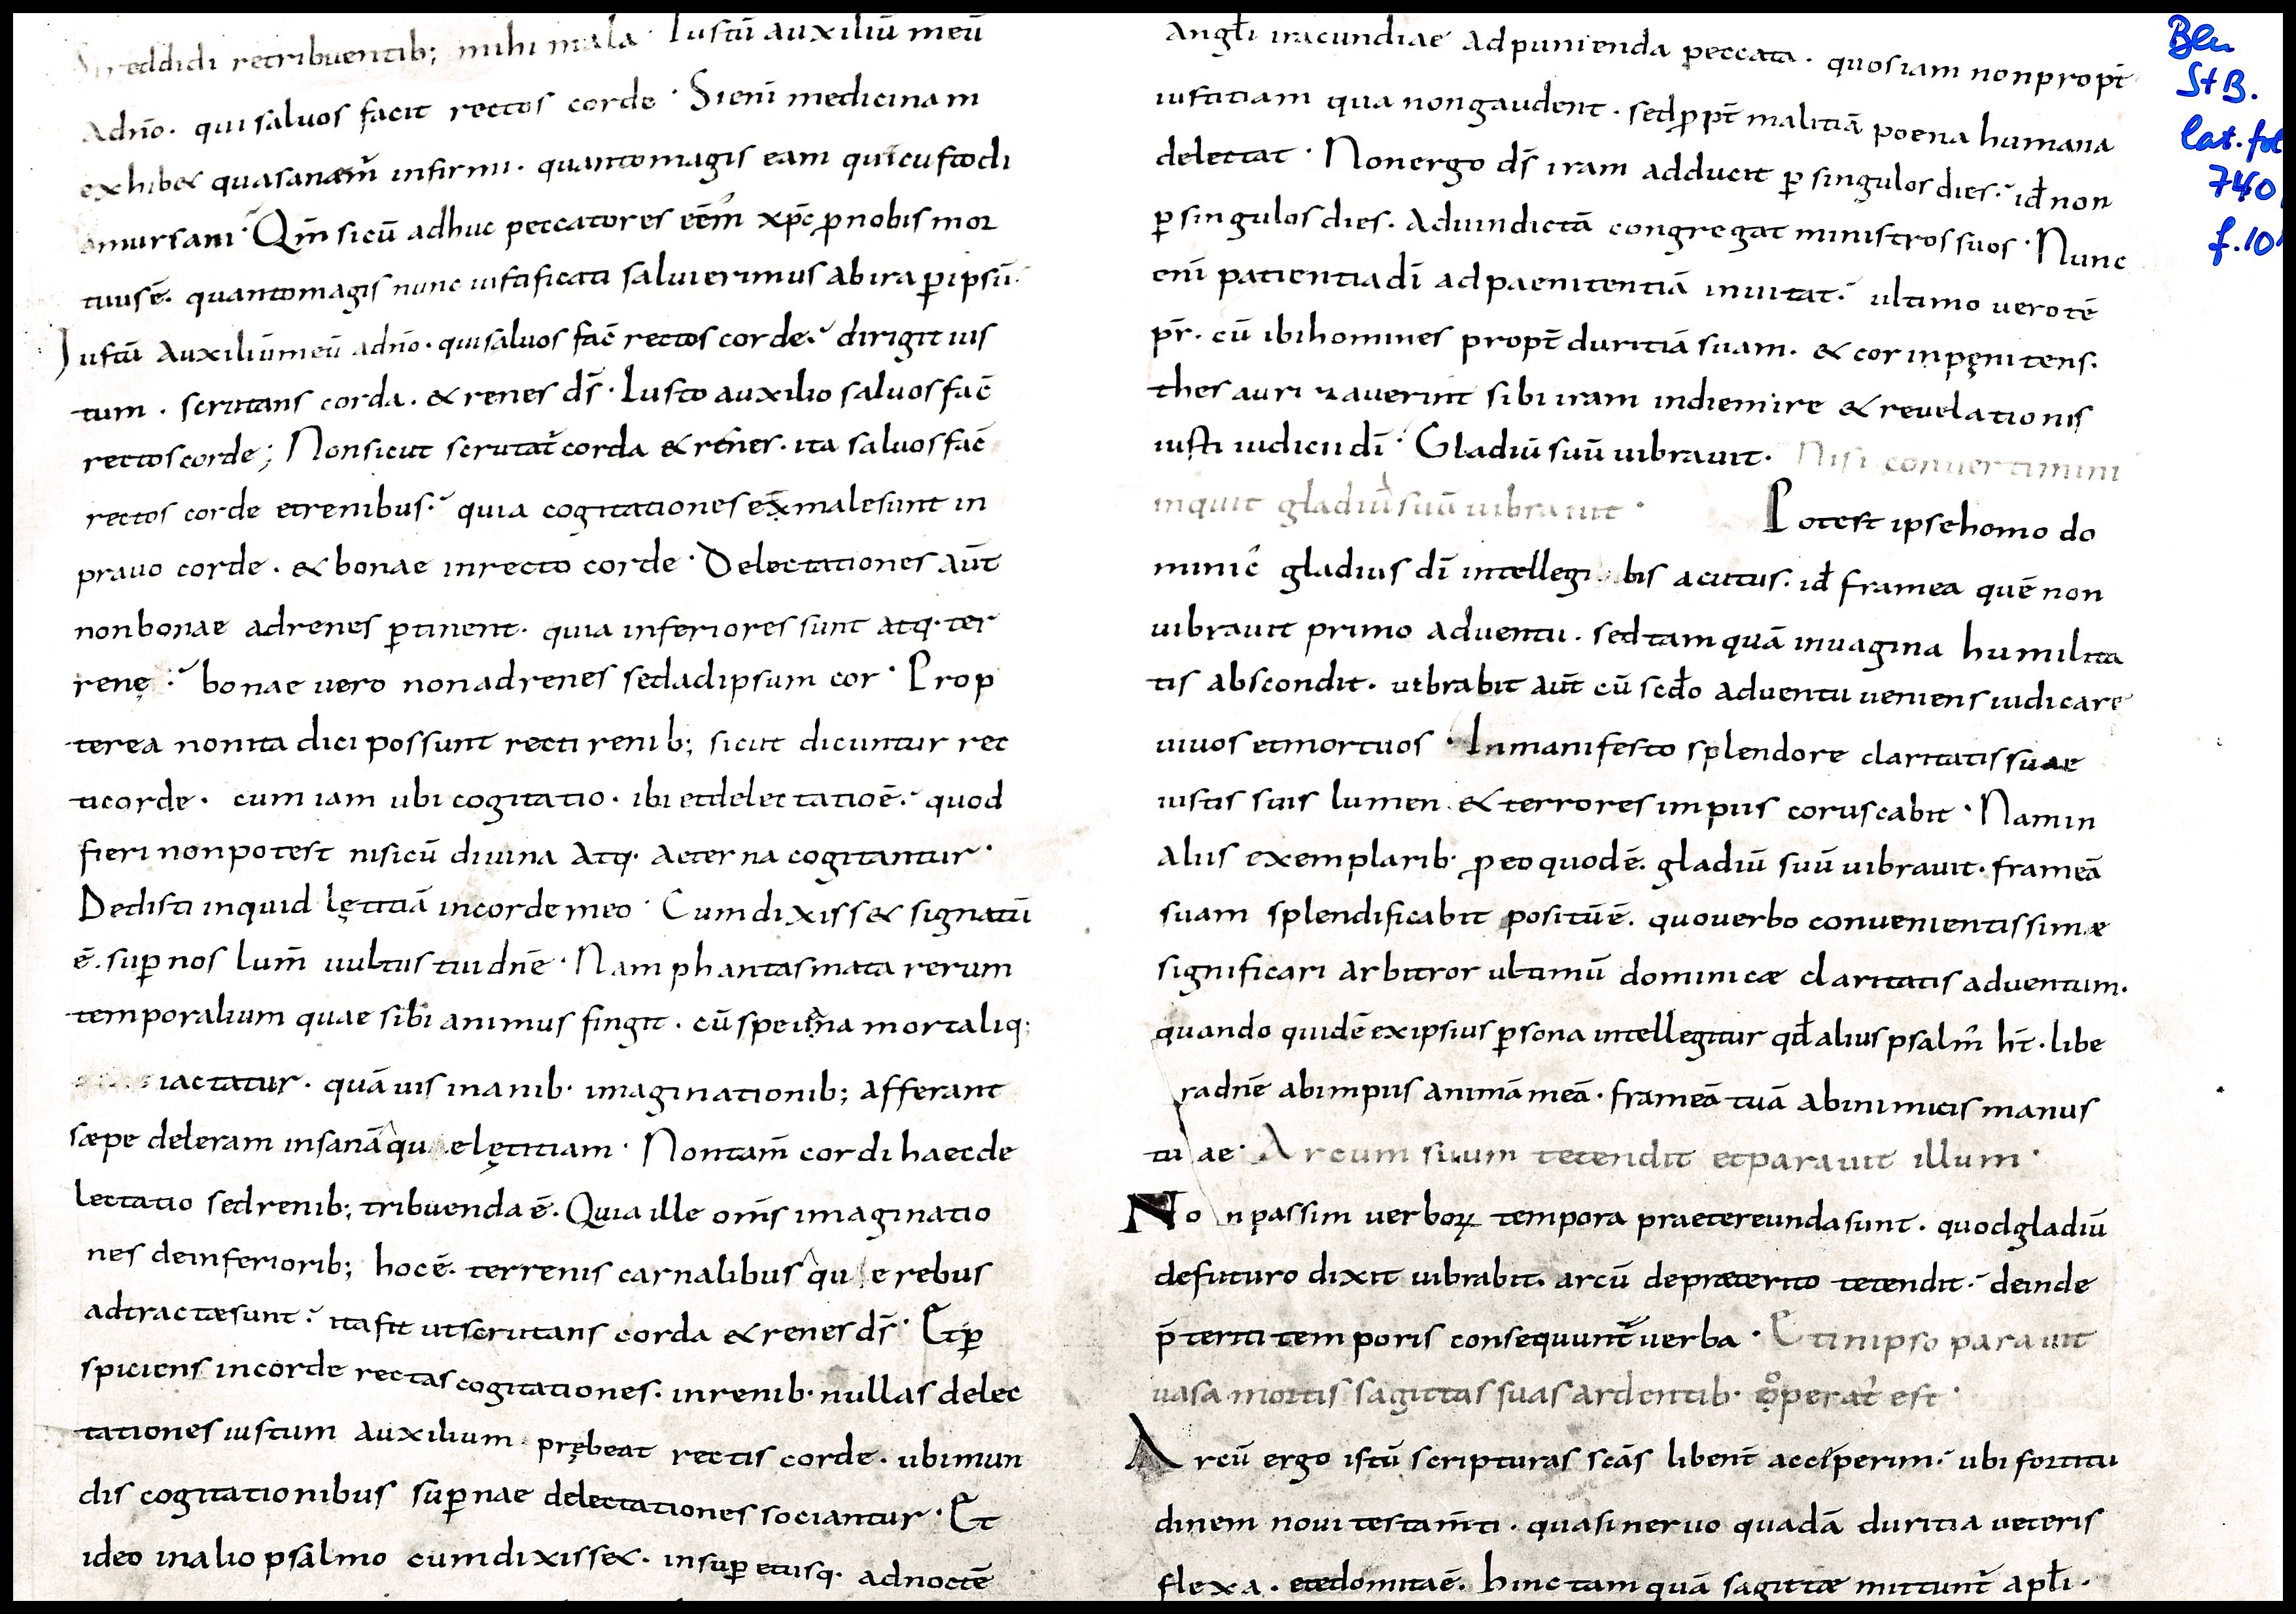 Si reddidi retribuentib; mihi mala · Iustū auxiliū meū
Adnō· qui saluos facit rectos corde · Sienī medicinam
exhib& qua sanant̄ infirmi· quanto magis eam qua custodi
untur sani· Qm̄ sicū adhuc peccatores eēm̄ xp̄c ꝓ nobis mor
tuus ē· quanto magis nunc iustificati salui erimus ab ira ꝑ ipsū·
Iustū auxiliū meū adnō· qui saluos fac̄ rectos corde· dirigit ius
tum· scrutans corda· & renes ds̄· Iusto auxilio saluos fac̄
rectos corde; Non sicut scrutat̄ corda & renes· ita saluos fac̄
rectos corde et renibus· quia cogitationes ex̄ male sunt in
prauo corde· & bonae in recto corde · Delectationes aūt
non bonae ad renes ꝑtinent· quia inferiores sunt atq· ter
renę· bonae uero non ad renes sed ad ipsum cor · Prop
terea non ita dici possunt recti renib; sicut dicuntur rec
ti corde· cum iam ubi cogitatio· ibi et delectatio ē· quod
fieri non potest nisi cū diuina atq· aeterna cogitantur·
Dedisti inquid lętitiā in corde meo · Cum dixiss& signatū
ē· suꝑ nos lum̄ uultus tui dnē · Nam phantasmata rerum
temporalium quae sibi animus fingit· cū spe inana mortaliq;
iactatur· quāuis inanib· imaginationib; afferant
sæpe deleram insanā qu e lętitiam · Non tam̄ cordi haec de
lectatio sed renib; tribuenda ē· Quia ille om̄s imaginatio
nes de inferiorib; hoc ē· terrenis carnalibus qu e rebus
adtractæ sunt· ita fit ut scrutans corda & renes ds̄ · Et ꝑ
spiciens in corde rectas cogitationes· in renib· nullas delec
tationes iustum auxilium· prębeat rectis corde· ubi mun
dis cogitationibus suꝑnae delectationes sociantur · Et
ideo in alio psalmo cum dixiss&· insuꝑ et usq· ad noctē
Angłi iracundiae ad punienda peccata· quos iam non propt̄
iustitiam qua non gaudent· sed ꝓpt̄ malitiā poena humana
delectat · Non ergo ds̄ iram adducit ꝑ singulos dies· id̄ non
ꝑ singulos dies· ad uindictā congregat ministros suos · Nunc
enī patientia dī ad paenitentiā inuitat· ultimo uero tē
pr̄· cū ibi homines propt̄ duritiā suam· & cor inpęnitens·
thesaurizauerint sibi iram in die m ire & reuelationis
iusti iudicii dī · Gladiū suū uibrauit· Nisi conuertimini
inquit gladiū suū uibrauit ·
Potest ipse homo do
minic̄ gladius dī intellegi bis acutus· id̄ framea quē non
uibrauit primo aduentu· sed tamquā in uagina humilita
tis abscondit· uibrabit aūt cū scd̄o aduentu ueniens iudicare
uiuos et mortuos · In manifesto splendore claritatis suae
iustis suis lumen & terrores impiis coruscabit · Nam in
aliis exemplarib· ꝓ eo quod ē· gladiū suū uibrauit· frameā
suam splendificabit positū ē· quo uerbo conuenientissimæ
significari arbitror ultimū dominicæ claritatis aduentum·
quando quidē ex ipsius ꝑsona intellegitur qd̄ alius psalm̄ ht̄· libe
ra dnē ab impiis animā meā· frameā tuā ab inimicis manus
tuae· Arcum suum tetendit et parauit illum ·
Non passim uerborꝝ tempora praetereunda sunt· quod gladiū
de futuro dixit uibrabit· arcū de præterito tetendit· deinde
p̄teriti temporis consequunt̄ uerba · Et in ipso parauit
uasa mortis sagittas suas ardentib· operat̄ est ·
Arcū ergo istū scripturas scās libent̄ acceperim· ubi fortitu
dinem noui testam̄ti· quasi neruo quadā duritia ueteris
flexa· et edomita ē· hinc tamquā sagittæ mittunt̄ apłi·
Bln
StB.
lat. fol
740
f. 10